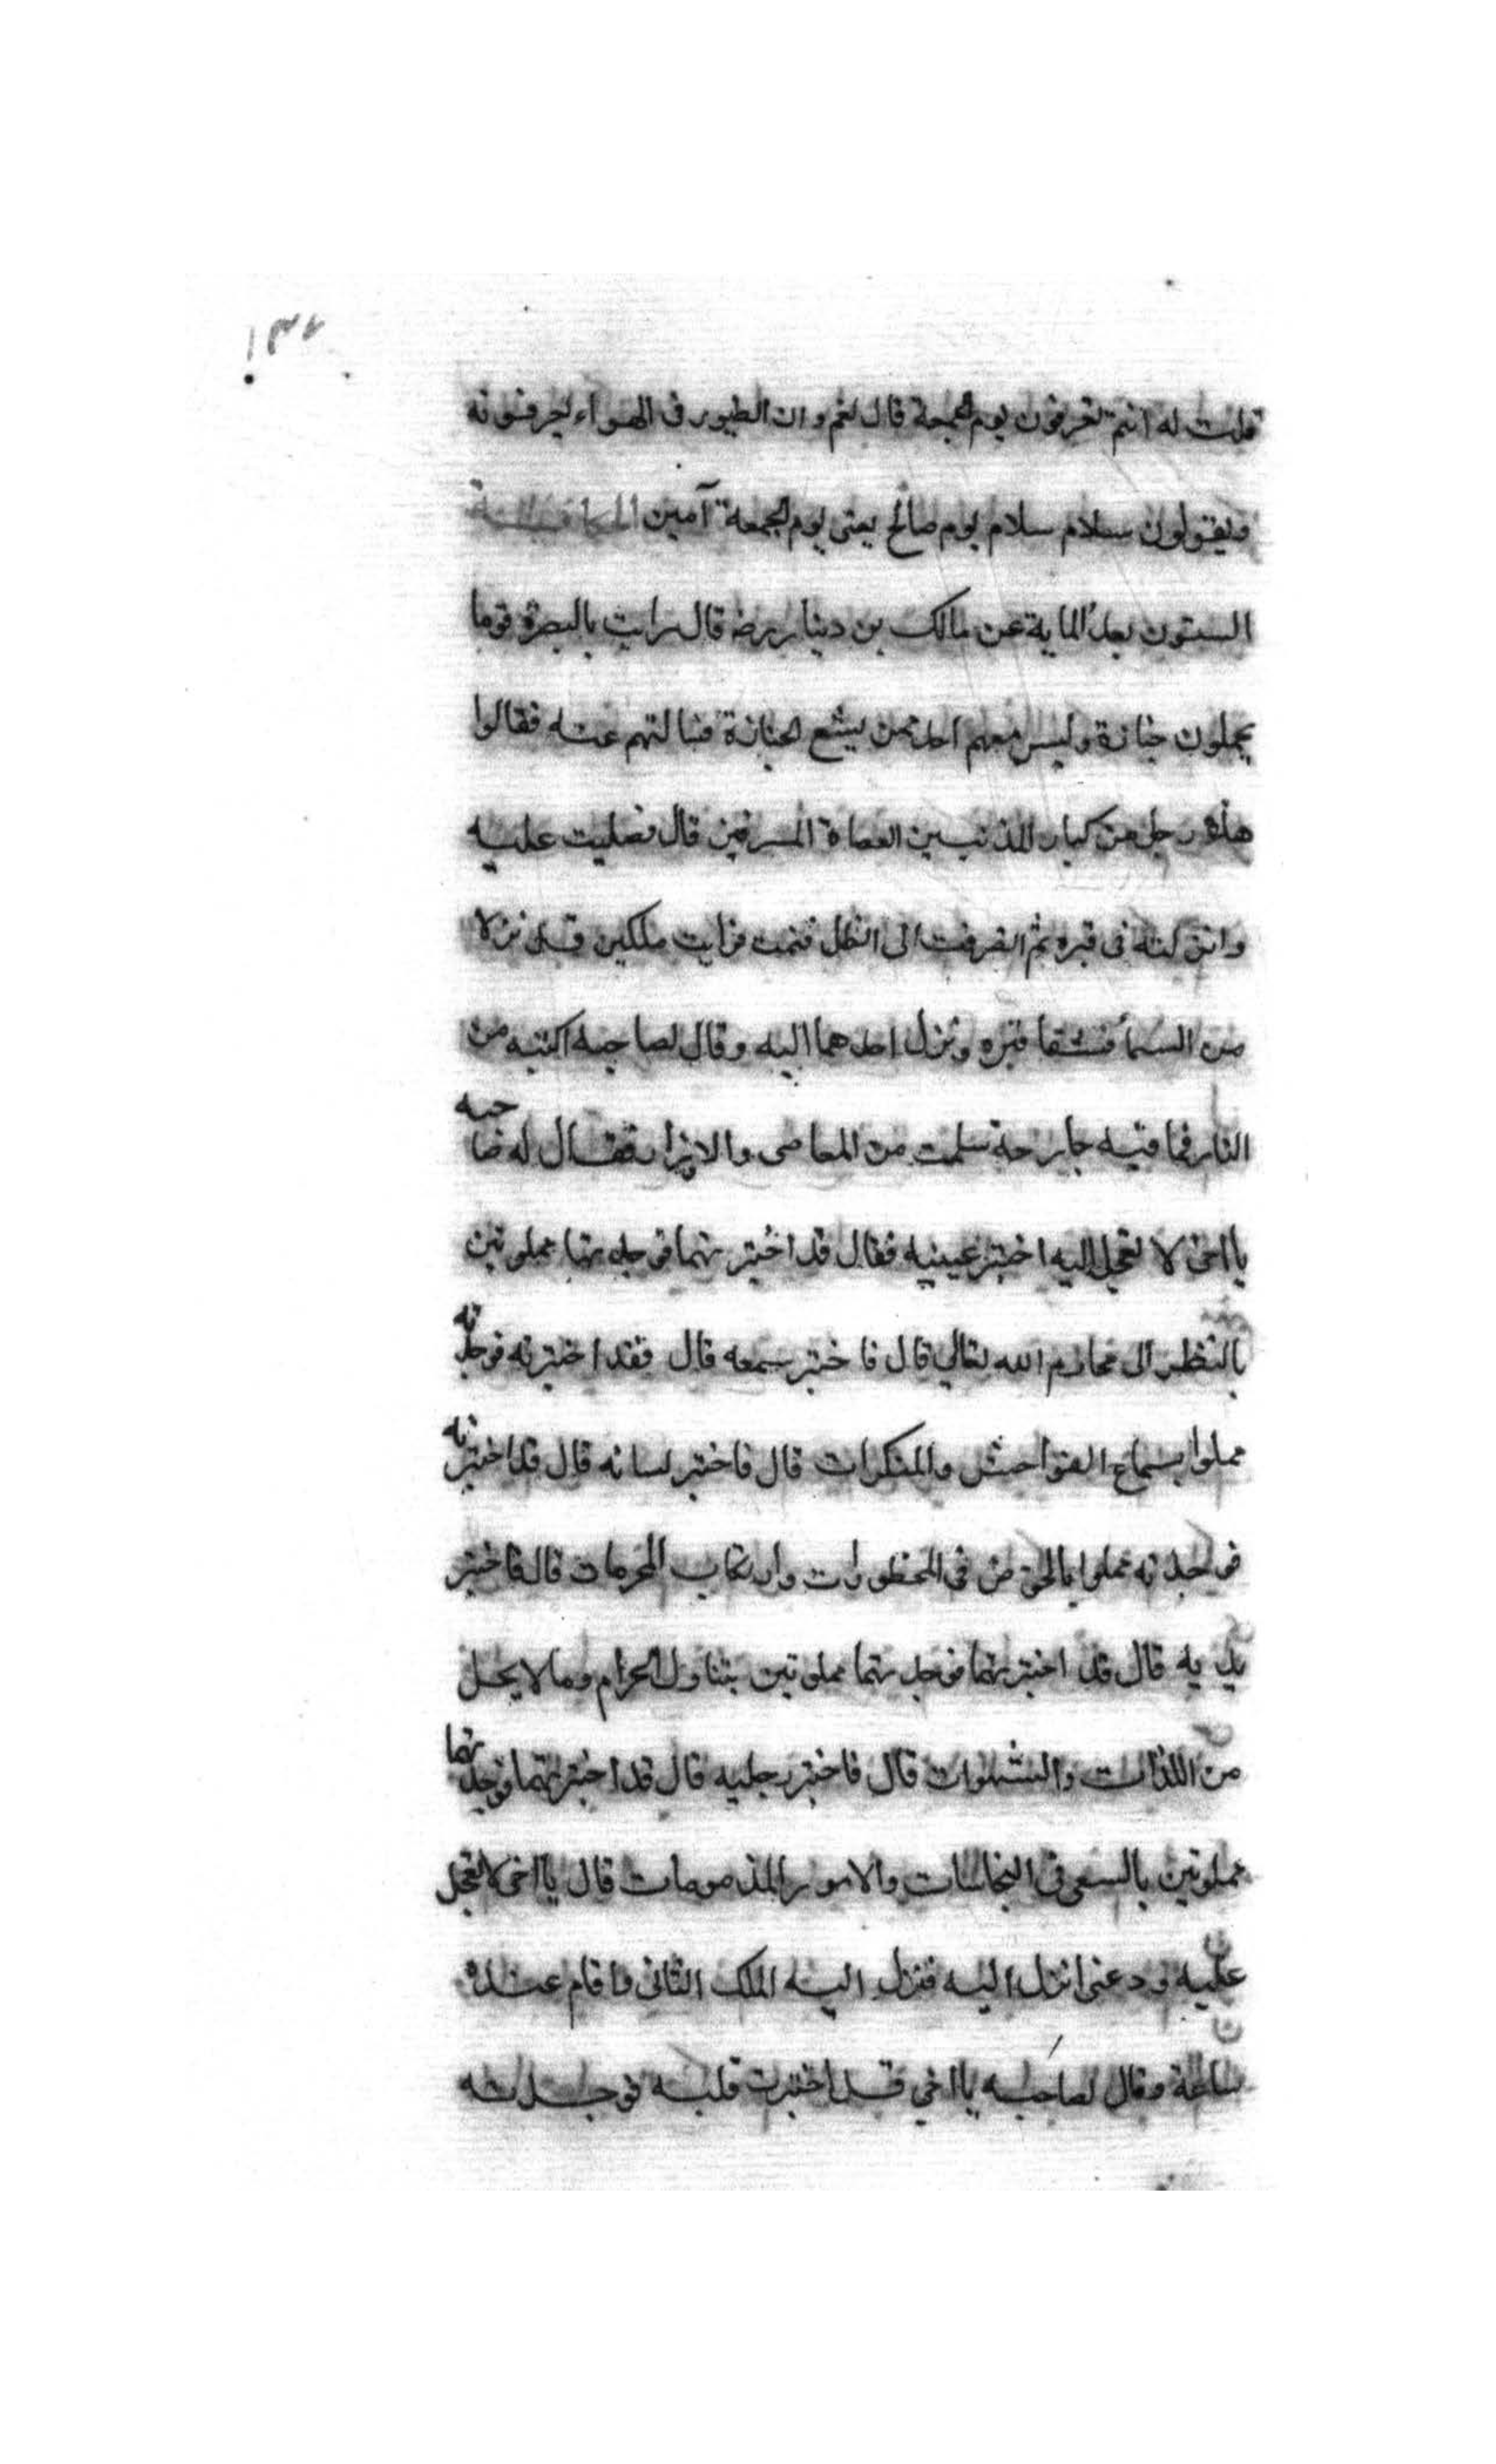 ١٣٤
قلت له انتم تعرفون يوم الجمعة قال نعم وان الطيور فى الهواء ليعرفونه
ويقولون سلام سلام يوم صالح يعنى يوم الجمعة آمين الحكاية
الستون بعد الماية عن مالك بن دينار رضه قال رايت بالبصرة قوما
يحملون جنازة وليس معهم احد ممن يشيع الجنازة فسالتهم عنه فقالوا
هذا رجل من كبار المذنبين العصاة المسرفين قال فصليت عليه
وانزلته فى قبره ثم انصرفت الى الظل فنمت فرايت ملكين قد نزلا
من السماء فشقا قبره ونزل احدهما اليه وقال لصاحبه اكتبه من
النار فما فيه جارحة سلمت من المعاصى والاوزار فقال له صاحبه
يا اخى لا تعجل اليه اختبر عينيه فقال قد اختبرتهما فوجدتهما مملوتين
بالنظر الى محارم الله تعالى قال فاختبر سمعه قال فقد اختبرته فوجدته
مملوا بسماع الفواحش والمنكرات قال فاختبر لسانه قال قد اختبرته
فوجدته مملوا بالخوض فى المحظورات وارتكاب المحرمات قال فاختبر
يديه قال قد اختبرتهما فوجدتهما مملوتين بتناول الحرام وما لا يحل
من اللذات والشهوات قال فاختبر رجليه قال قد اختبرتهما فوجدتهما
مملوتين بالسعى فى النجاسات والامور المذمومات قال يا اخى لا تعجل
عليه ودعنى انزل اليه فنزل اليه الملك الثانى فاقام عنده
ساعة وقال لصاحبه يا اخي قد اختبرت قلبه فوجدته